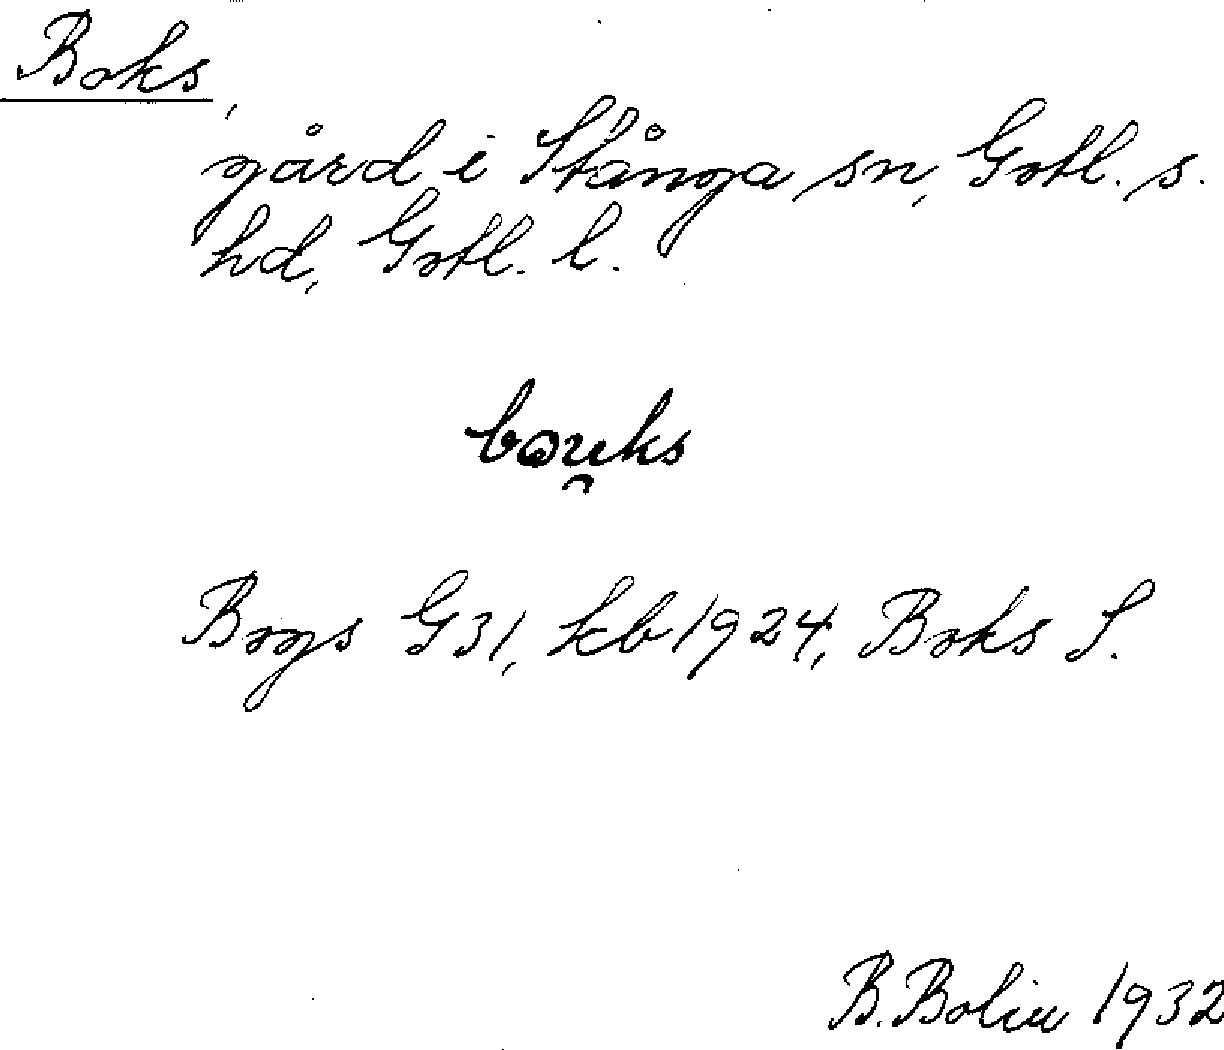 Boks,
gård i Stånga sn, Gotl. s.
hd, Gotl. l.
bɷu̯ks
Bogs G31, kb 1924, Boks S.
B. Bolin 1932